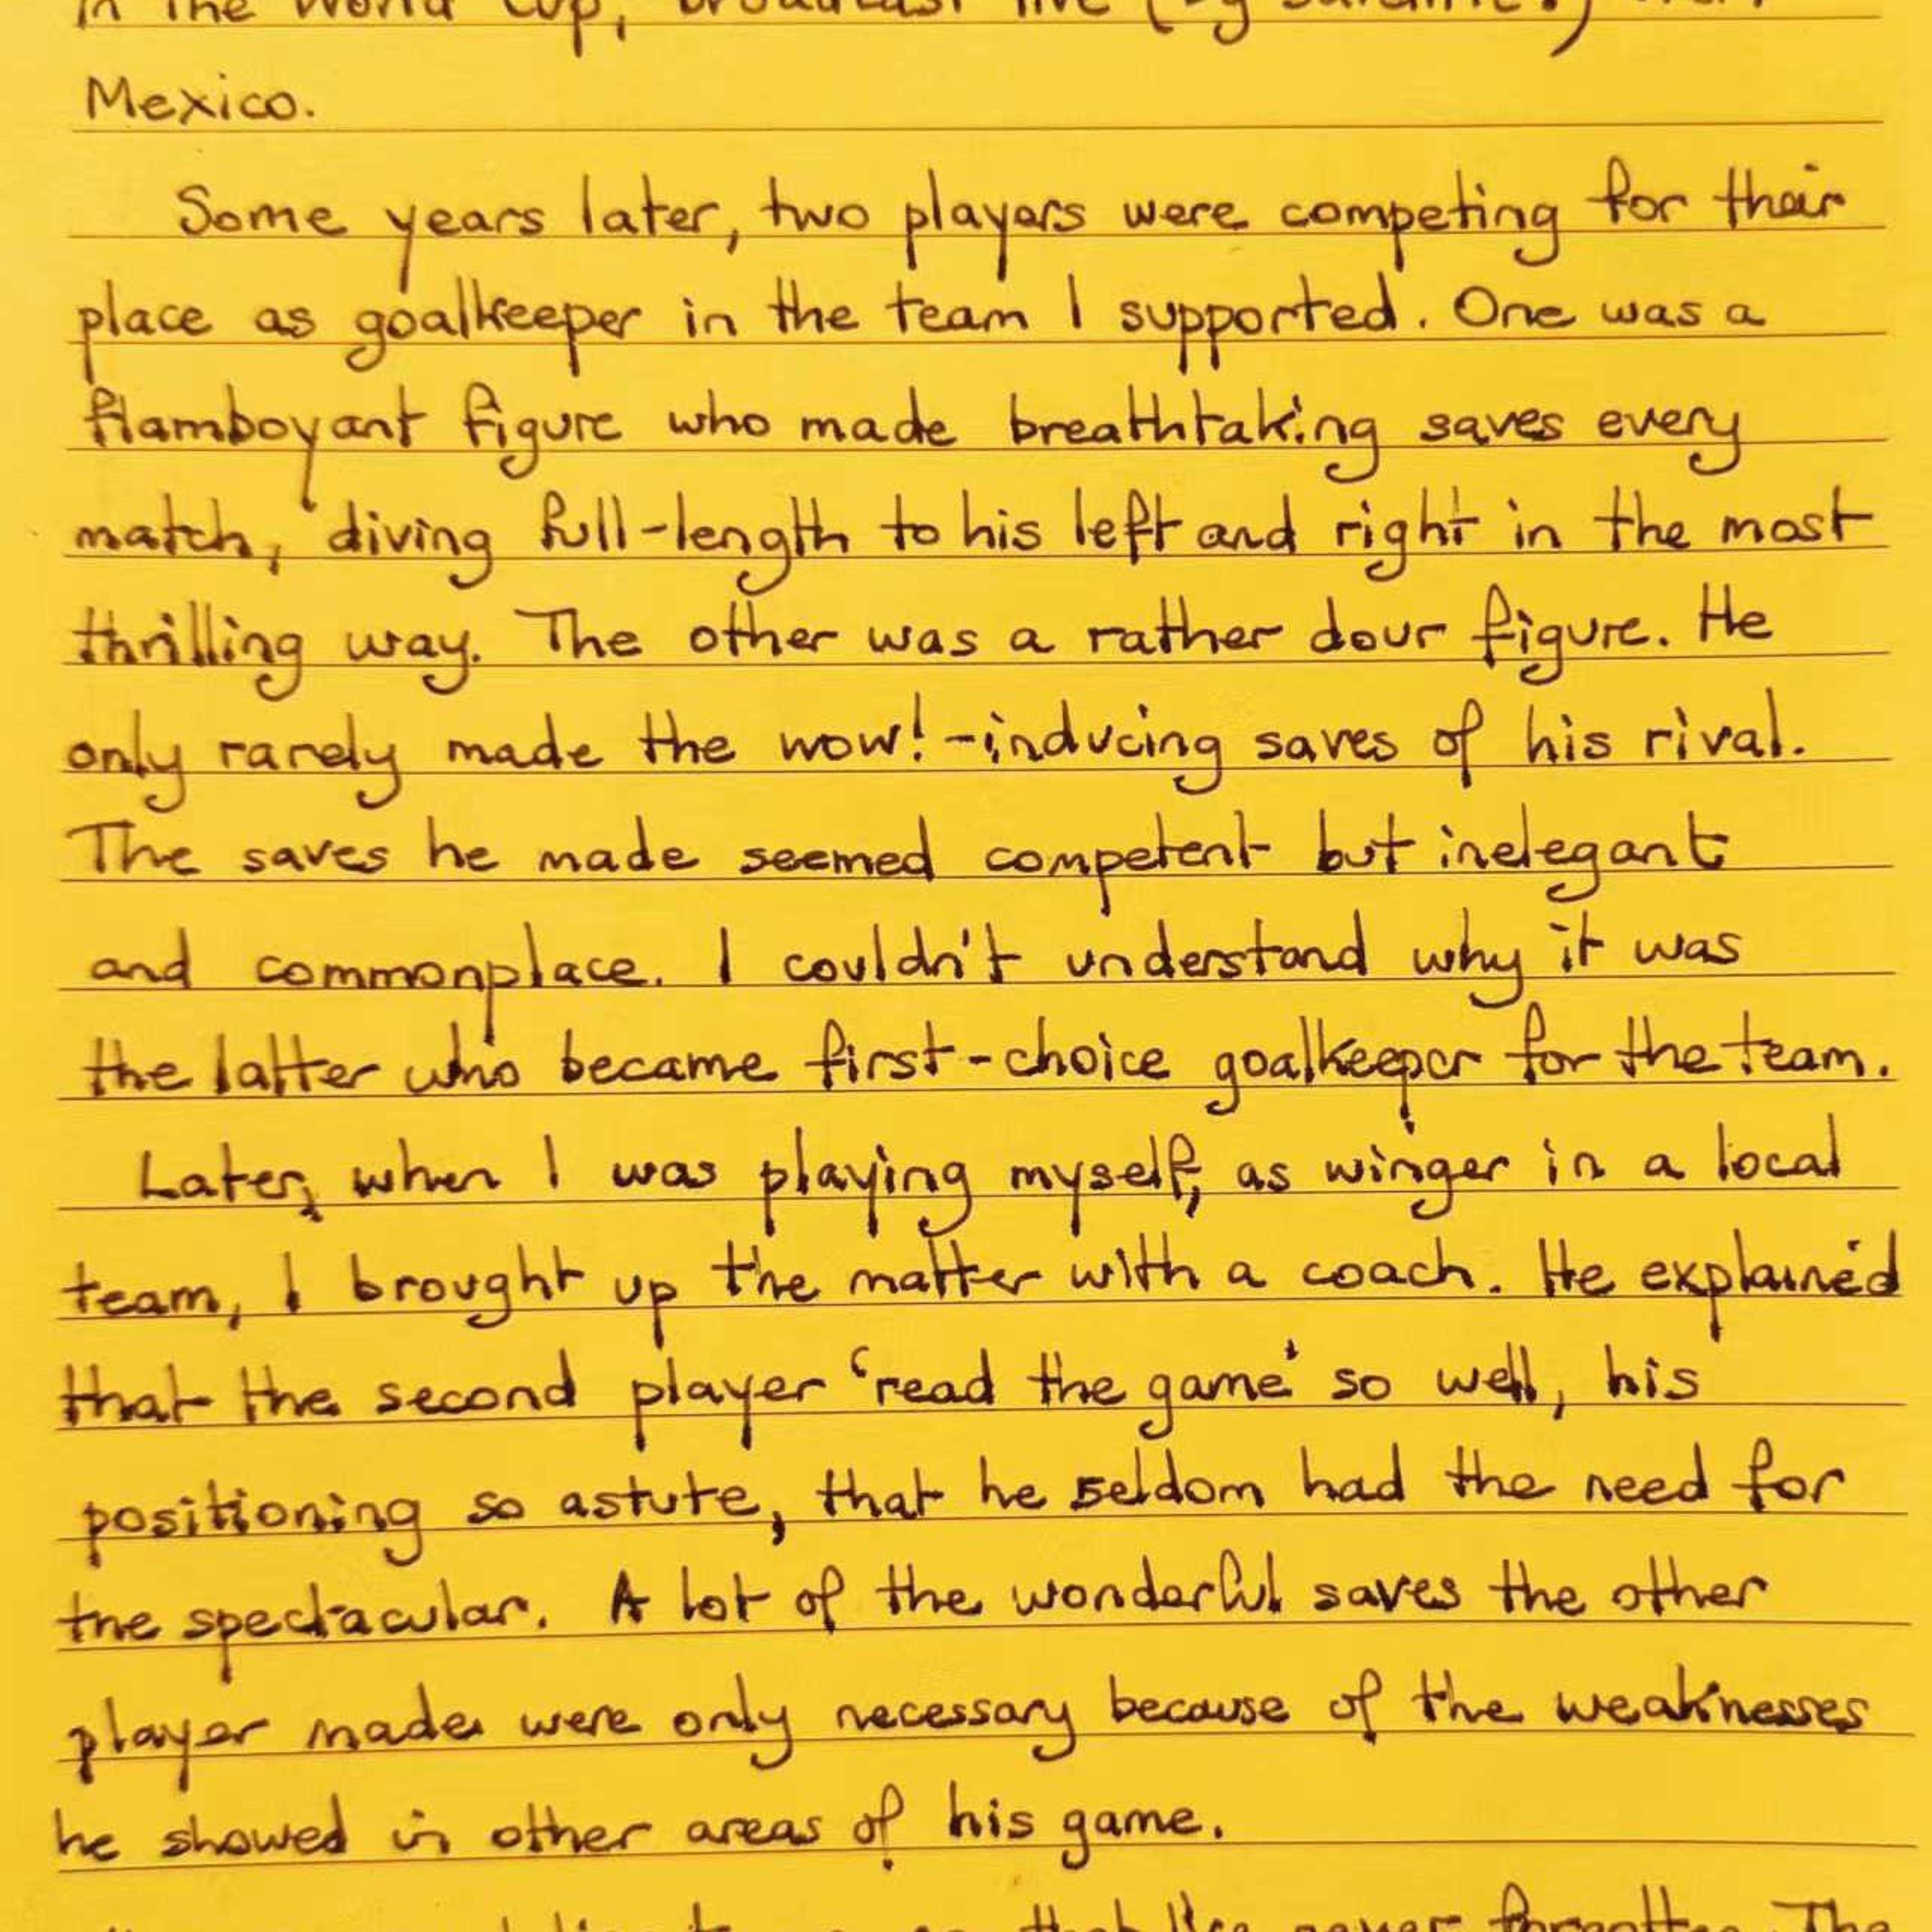 in the World Cup, broadcast live (by satellite!) from
Mexico.
Some years later, two players were competing for their
place as goalkeeper in the team I supported. One was a
flamboyant figure who made breathtaking saves every
match, diving full-length to his left and right in the most
thrilling way. The other was a rather dour figure. He
only rarely made the wow!-inducing saves of his rival.
The saves he made seemed competent but inelegant
and commonplace. I couldn't understand why it was
the latter who became first-choice goalkeeper for the team.
Later, when I was playing myself, as winger in a local
team, I brought up the matter with a coach. He explained
that the second player 'read the game' so well, his
positioning so astute, that he seldom had the need for
the spectacular. A lot of the wonderful saves the other
player made were only necessary because of the weaknesses
he showed in other areas of his game.
that I've never forgotten. The